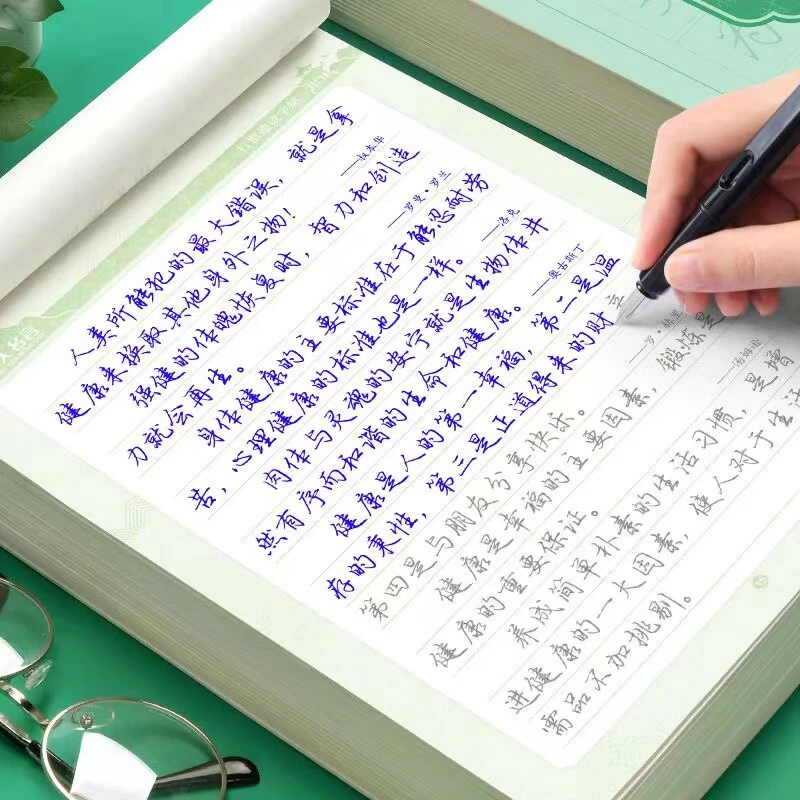 名言
人类所能犯的最大错误，就是拿
健康来换取其他身外之物！
——叔本华
强健的体魄恢复时，智力和创造
力就会再生。
——罗曼·罗兰
身体健康的主要标准在于能忍耐劳
苦，心理健康的标准也是一样。
——洛克
肉体与灵魂的安宁就是生物体井
然有序而和谐的生命和健康。
——奥古斯丁
健康是人的第一幸福，第二是温
存的秉性，第三是正道得来的财
第四是与朋友分享快乐。
——罗·赫里
健康是幸福的主要因素，锻炼是
健康的重要保证。
——汤姆逊
养成简单朴素的生活习惯，是增
进健康的一大因素，使人对于生活
需品不加挑剔。